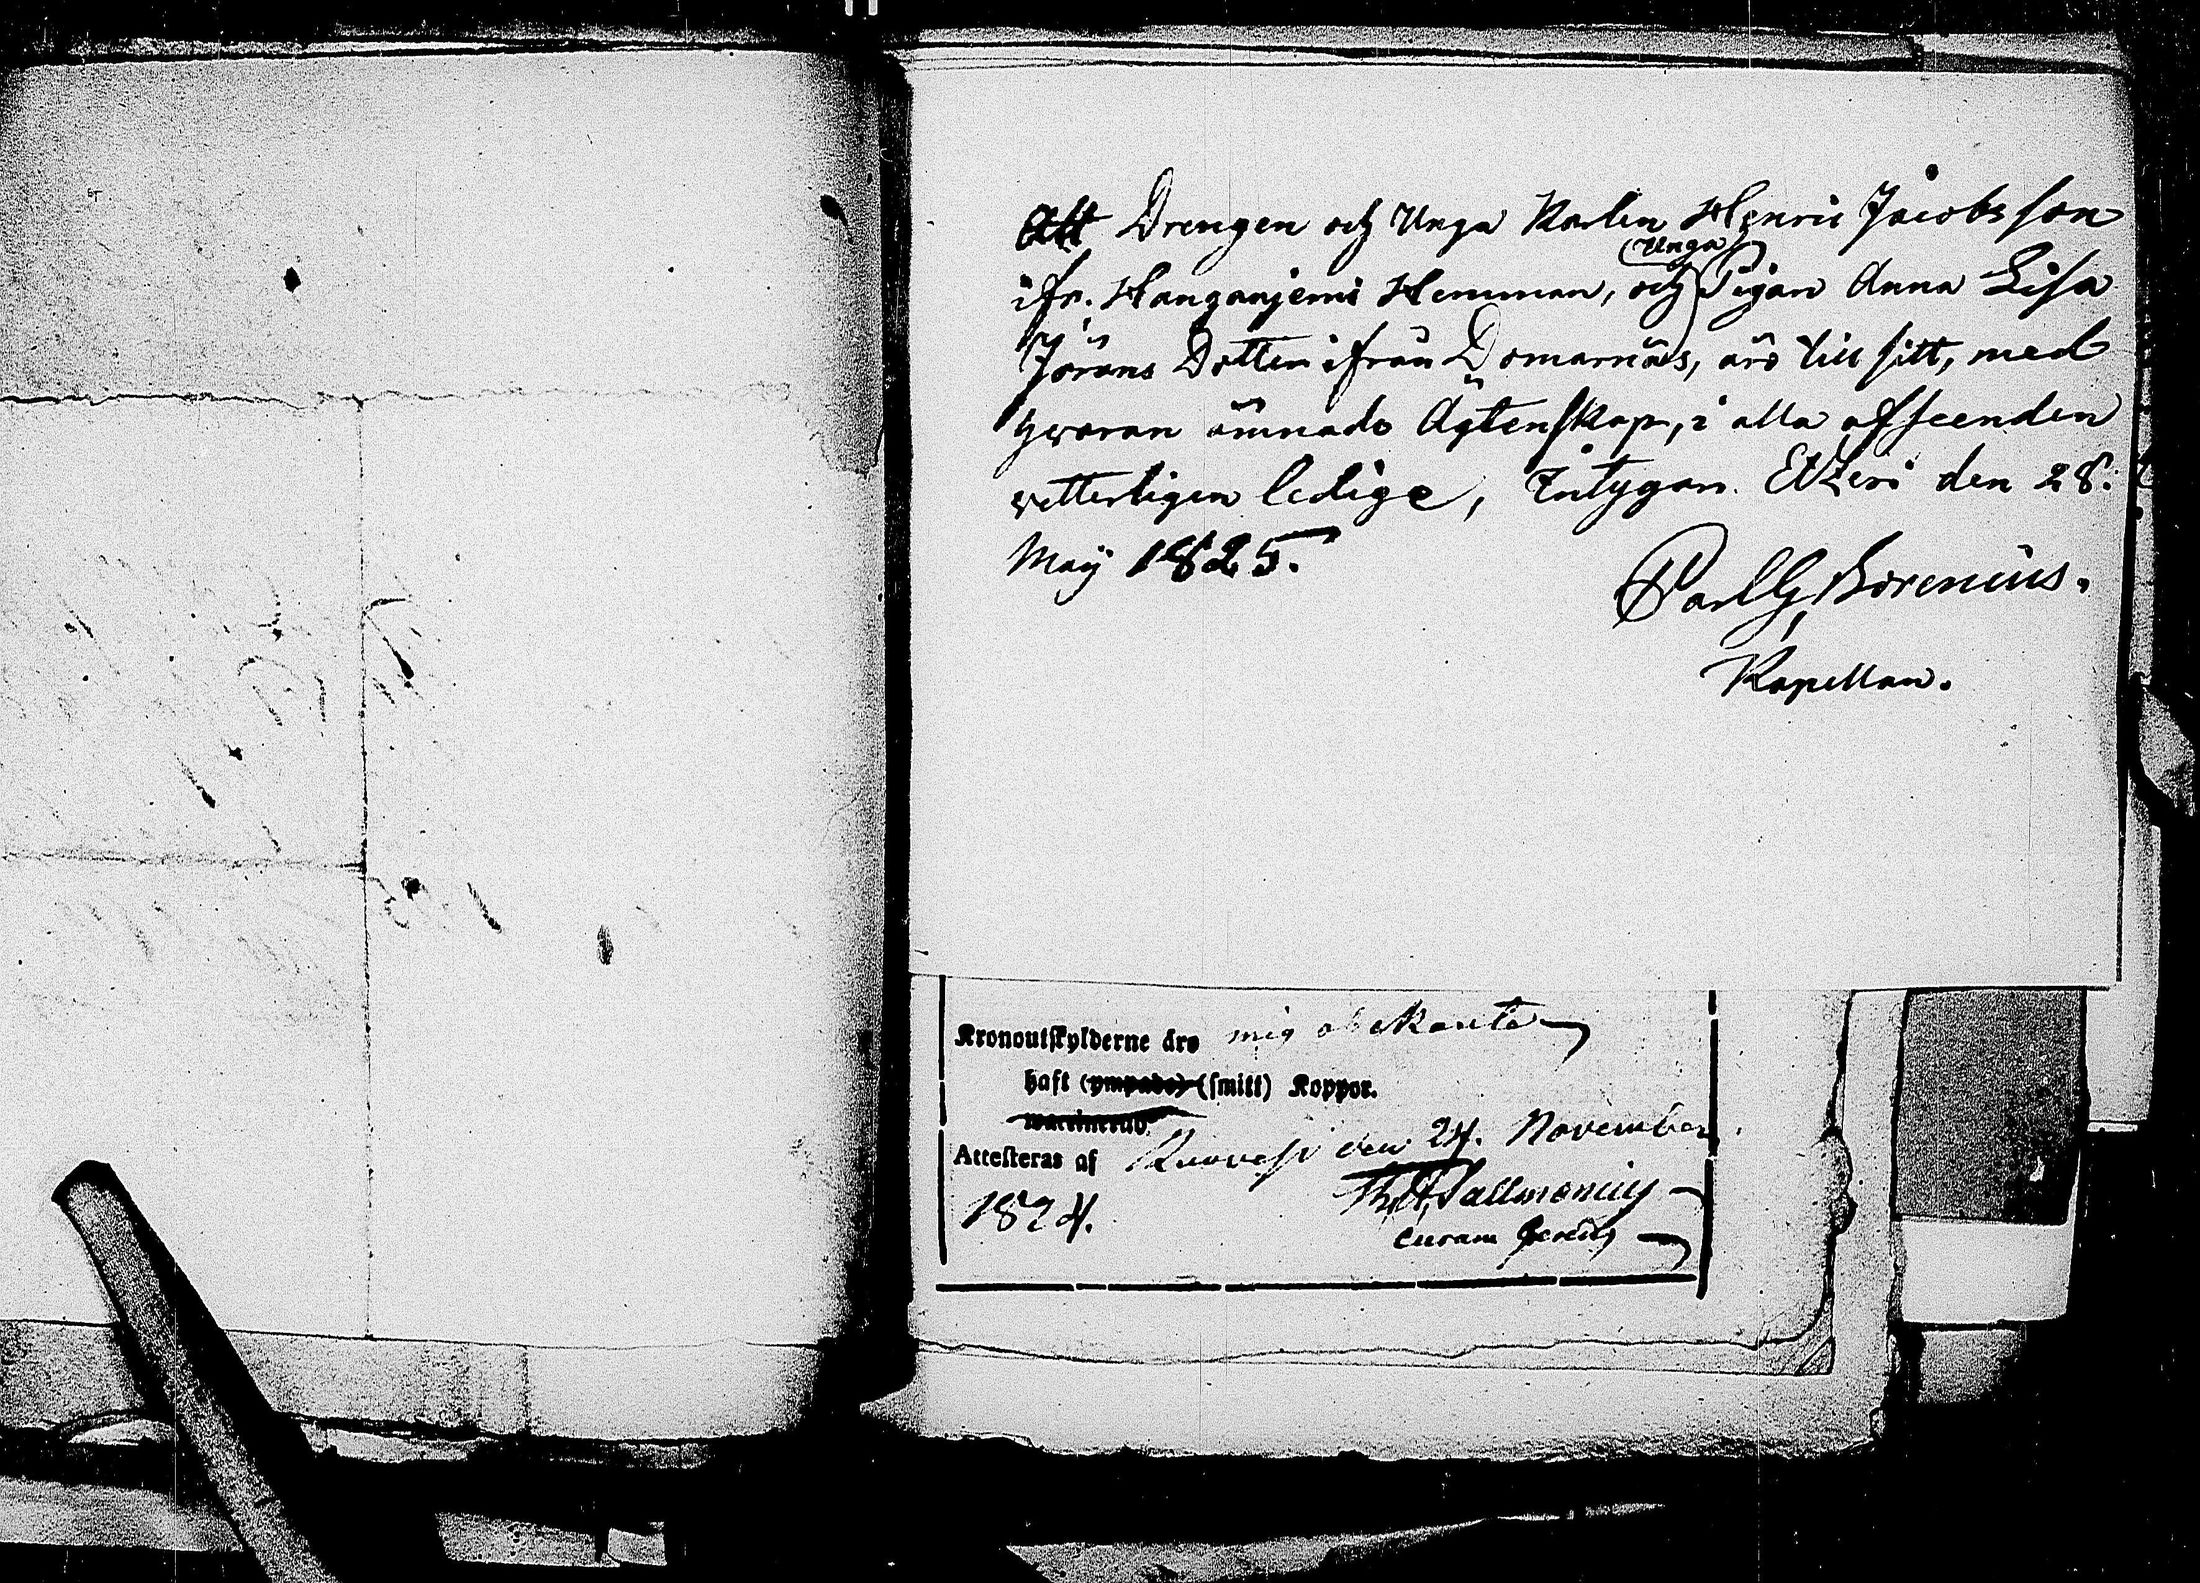 Att Drengen och Unga Karlen Henric Jacobsson
ifr. Hanganjemi Hemman, och Unga Pigan Anna Lisa
Jörans Dotter ifrån Domarnäs, äro till sitt, med
hvaran ämnade Ägtenskap, i alla afseenden
vetterligen ledige, Intygar. Etzeri den 28.
Maÿ 1825.
Carl G. Borenius.
Kapellan.
Kronoutskylderne äro mig obekanta
haft (ympade) (smitt) Koppor.
waccinerad.
Attesteras af Ruovesi den 24. November
1824.
Th. A. Tallmenius
curam gerens